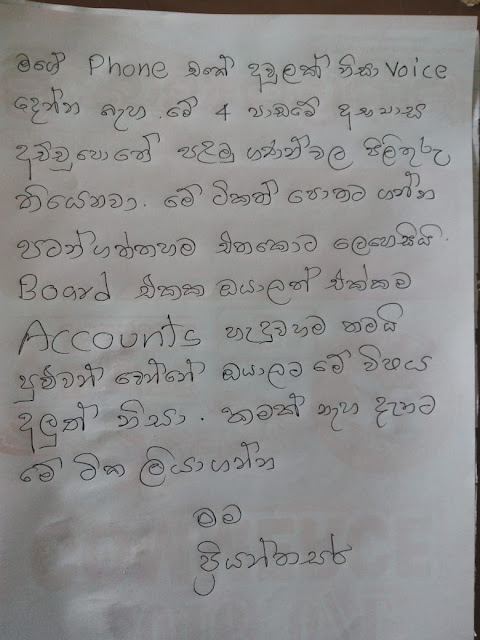 මගේ Phone එකේ අවුලක් නිසා Voice
දෙන්න බැහැ. මේ 4 පාඩමේ අභ්‍යාස
අච්චුපොතේ පළමු ගණන්වල පිලිතුරු
තියෙනවා. මේ ටිකත් පොතට ගන්න
පටන්ගත්තහම එතකොට ලෙහෙසියි.
Board එකක ඔයාලත් එක්කම
Accounts හැදුවහම තමයි
පුළුවන් වෙන්නේ ඔයාලට මේ විෂය
අලුත් නිසා. කමක් නැහැ දැනට
මේ ටික ලියාගන්න
මම
ප්‍රියන්තසර්